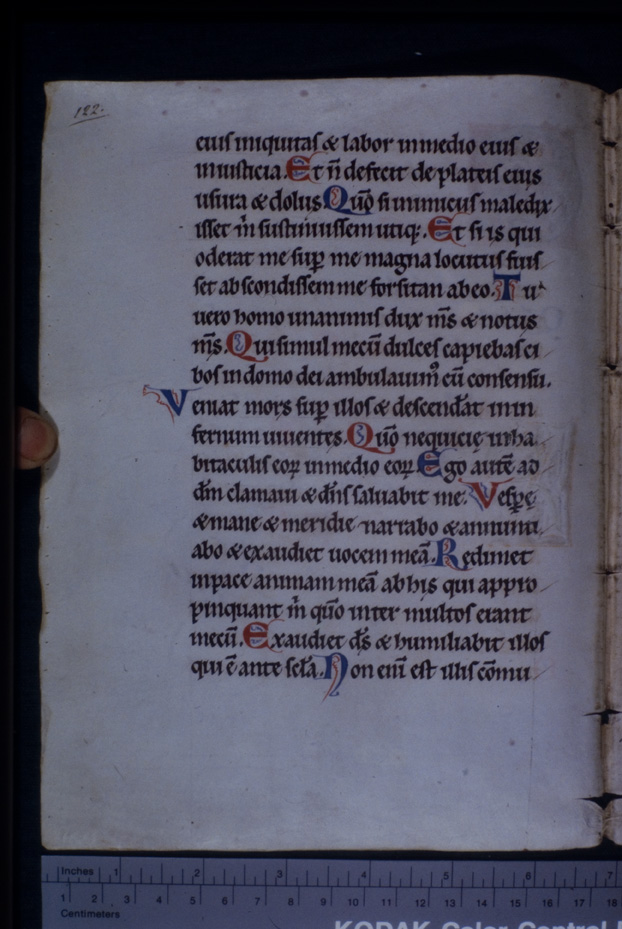 122.
eius iniquitas & labor inmedio eius &
iniusticia. Et ñ defecit de plateis eius
usura & dolus Quõ si inimicus maledix
isset m̃ sustinuissem utiq;. Et si is qui
oderat me sup̱ me magna locutus fuis
set abscondissem me forsitan ab eo. Tu
uero homo unanimis dux ms̃ & notus
ms̃. Qui simul mecũ dulces capiebas ci
bos in domo dei ambulauimꝰ cũ consensu.
Veniat mors sup̱ illos & descendãt in in
fernum uiuentes. Quõ nequicię in ha
bitaculis eoꝝ inmedio eoꝝ Ego autẽ ad
dm̃ clamaui & dñs saluabit me. Vesp̱ę
& mane & meridie narrabo & annunti
abo & exaudiet uocem meã. Redimet
inpace animam meã ab his qui appro
pinquant m̃ quõ inter multos erant
mecũ. Exaudiet ds̃ & humiliabit illos
qui ẽ ante scl̃a. Non enĩ est illis cõmu
Inches 1 2 3 4 5 6 7
1 2 3 4 5 6 7 8 9 10 11 12 13 14 15 16 17 18
Centimeters
KODAK Color Control